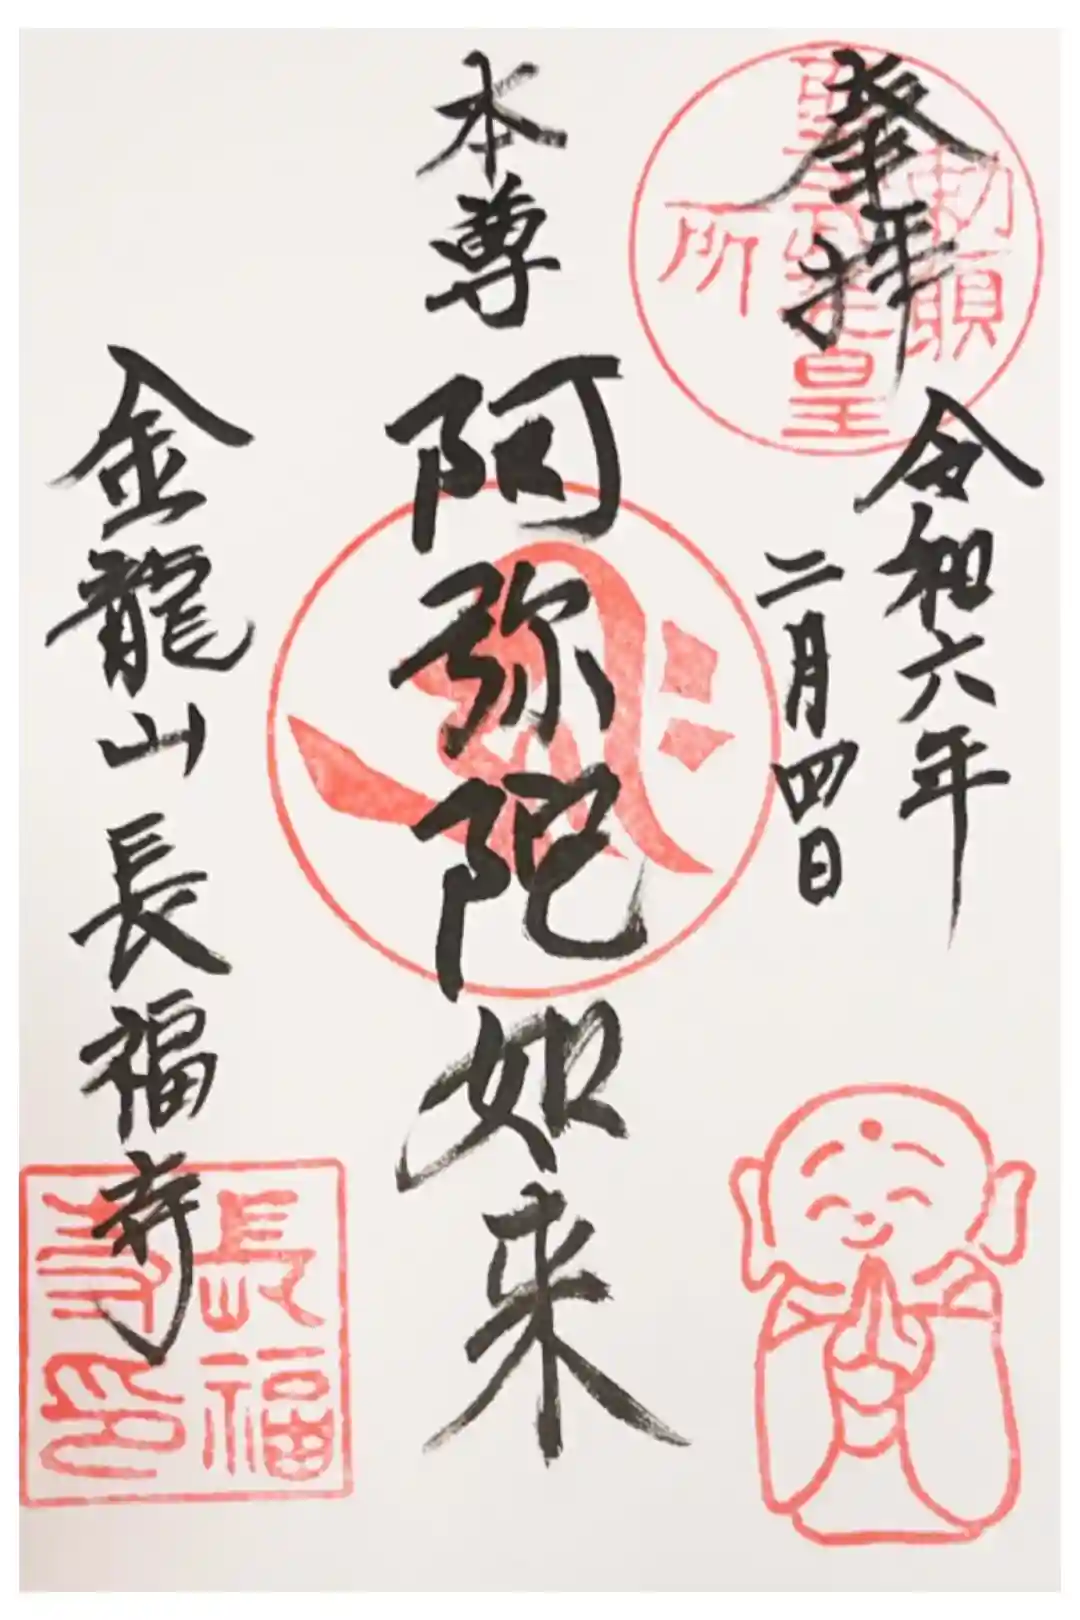 奉拝
令和六年
二月四日
本尊
阿弥陀如来
金龍山 長福寺
勅願
聖武天皇
所
長福
寺印